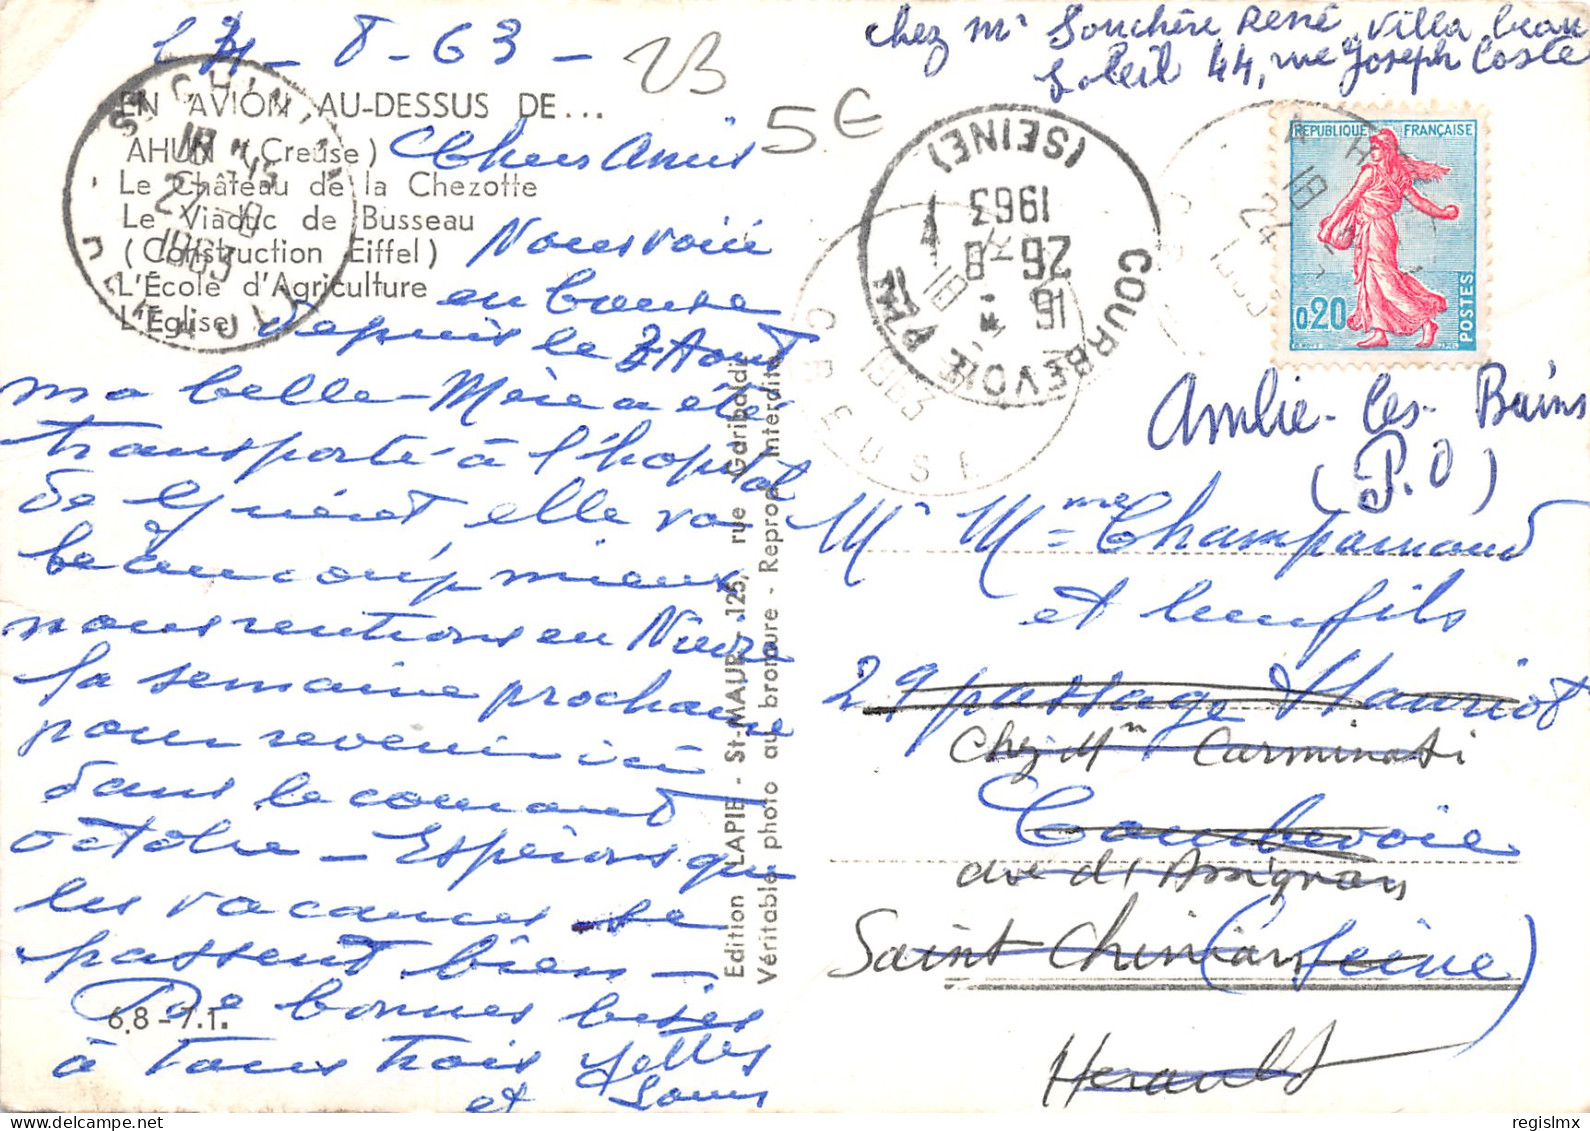 24-8-63-
23
5€
chez Mr Souchère René, Villa beau
Soleil 44, rue Joseph Coste
Amlie-les-Bains
(P.O)
EN AVION AU-DESSUS DE...
AHUN (Creuse)
Le Château de la Chezotte
Le Viaduc de Busseau
(Construction Eiffel)
L'École d'Agriculture
L'Église
Chers Amis
Nous voici
en Creuse
depuis le 3 Août
ma belle-Mère a été
transporté à l'hopital
de Guéret elle va
beaucoup mieux
nous rentrons en Nièvre
la semaine prochaine
pour revenir ici
dans le courant
octobre - Espérons que
les vacances se
passent bien -
De bonnes bises
à tous trois
et Louis
6.8-7.1.
Edition LAPIE - St-MAUR - 125, rue Garibaldi
Véritable photo au bromure - Reprod. Interdite
ST CHINIAN
HERAULT
18 H 15
27-8
1963
COURBEVOIE PPAL
(SEINE)
16 H
26-8
1963
CREUSE
18 H
1963
AHUN
18 H
24
1963
RÉPUBLIQUE FRANÇAISE
0,20
POSTES
Mr Mme Champarnaud
et leur fils
29 passage Hauriot
Chez Mr Carminati
Courbevoie
ave d'Assignan
Saint Chinian (Seine)
Herault
www.delcampe.net
regislmx